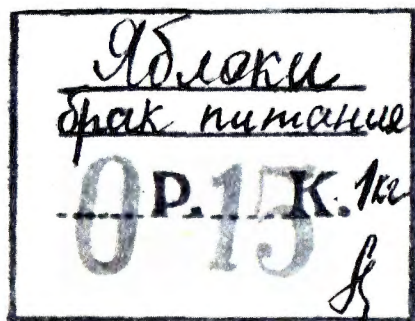 Яблоки
брак питание
0 Р. 15 К. 1кг